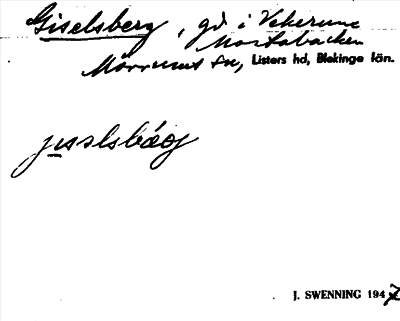 Giselsberg, gd i Vekerum
Norrabacken
Mörrums sn, Listers hd, Blekinge län.
jısəlsbæɹj
J. SWENNING 1947